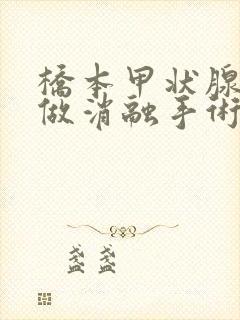 橋本甲状腺
做消融手術
盏盏